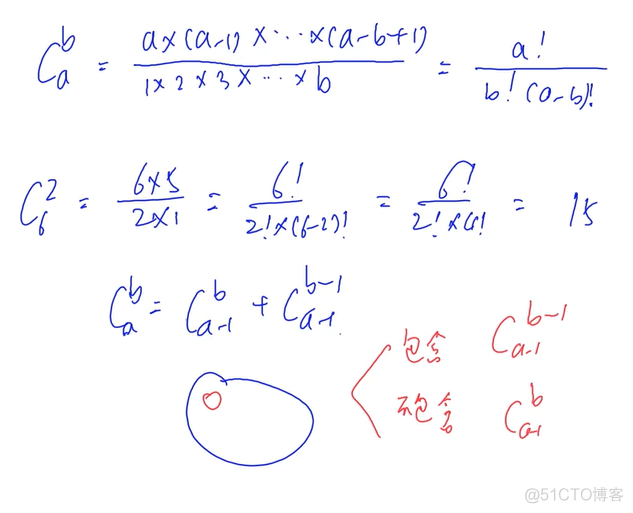 C_a^b = a×(a-1)×⋯×(a-b+1) / 1×2×3×⋯×b = a! / b!(a-b)!
C_6^2 = 6×5 / 2×1 = 6! / 2!×(6-2)! = 6! / 2!×4! = 15
C_a^b = C_{a-1}^b + C_{a-1}^{b-1}
包含 C_{a-1}^{b-1}
不包含 C_{a-1}^b
@51CTO博客